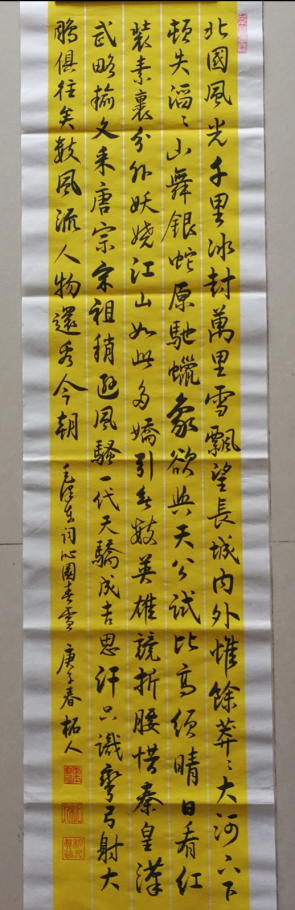 北國風光千里冰封萬里雪飄望長城内外惟餘莽〻大河六下
頓失滔〻山舞銀蛇原馳蠟象欲與天公試比高須晴日看紅
裝素裹分外妖嬈江山如此多嬌引無數英雄競折腰惜秦皇漢
武略輸文采唐宗宋祖稍遜風騷一代天驕成吉思汗只識彎弓射大
鵰俱往矣數風流人物還看今朝 毛澤東詞沁園春雪 庚子春 柘人